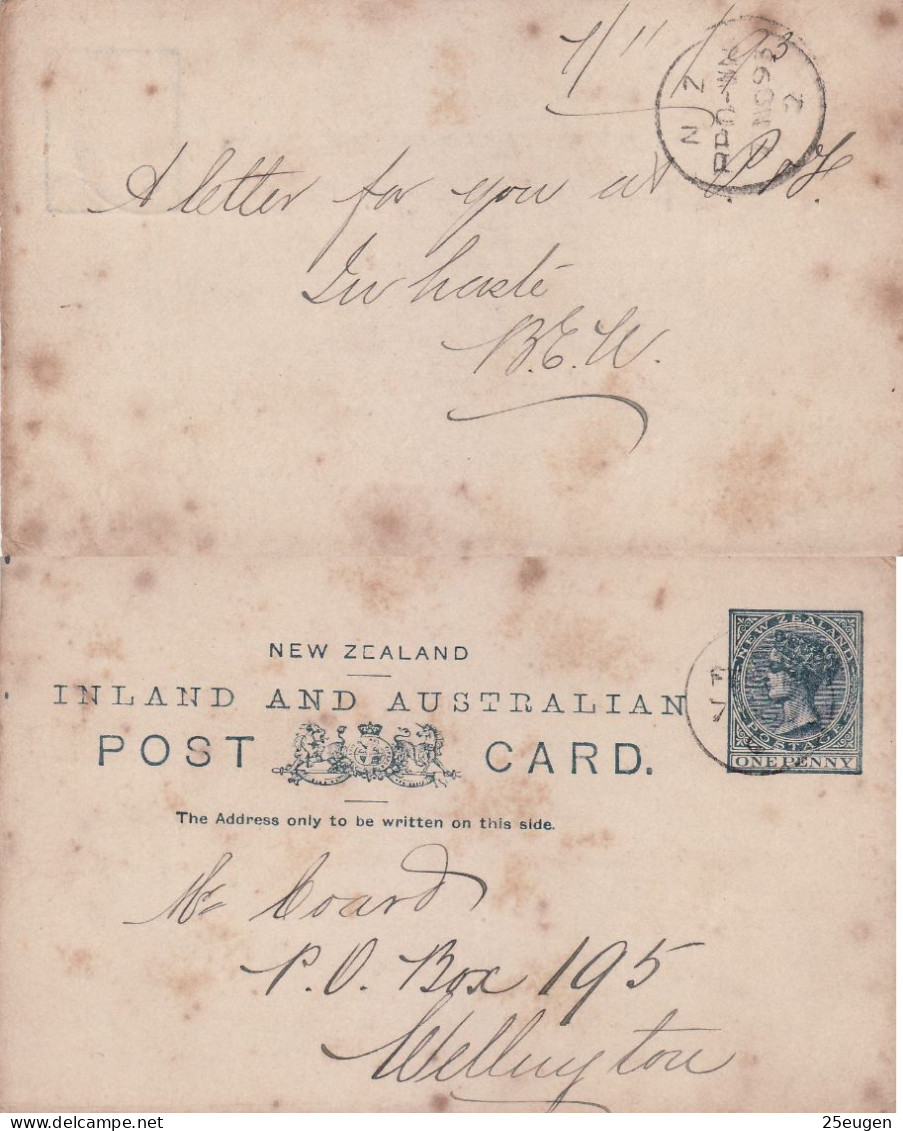 7/11/93
N Z
RPO-WN
NO 93
2
A letter for you at P.
In haste
B.E.W.
NEW ZEALAND
INLAND AND AUSTRALIAN
POST CARD.
The Address only to be written on this side.
NEW ZEALAND
POSTAGE
ONE PENNY
Mr Coard
P.O. Box 195
Wellington
delcampe.net
25eugen